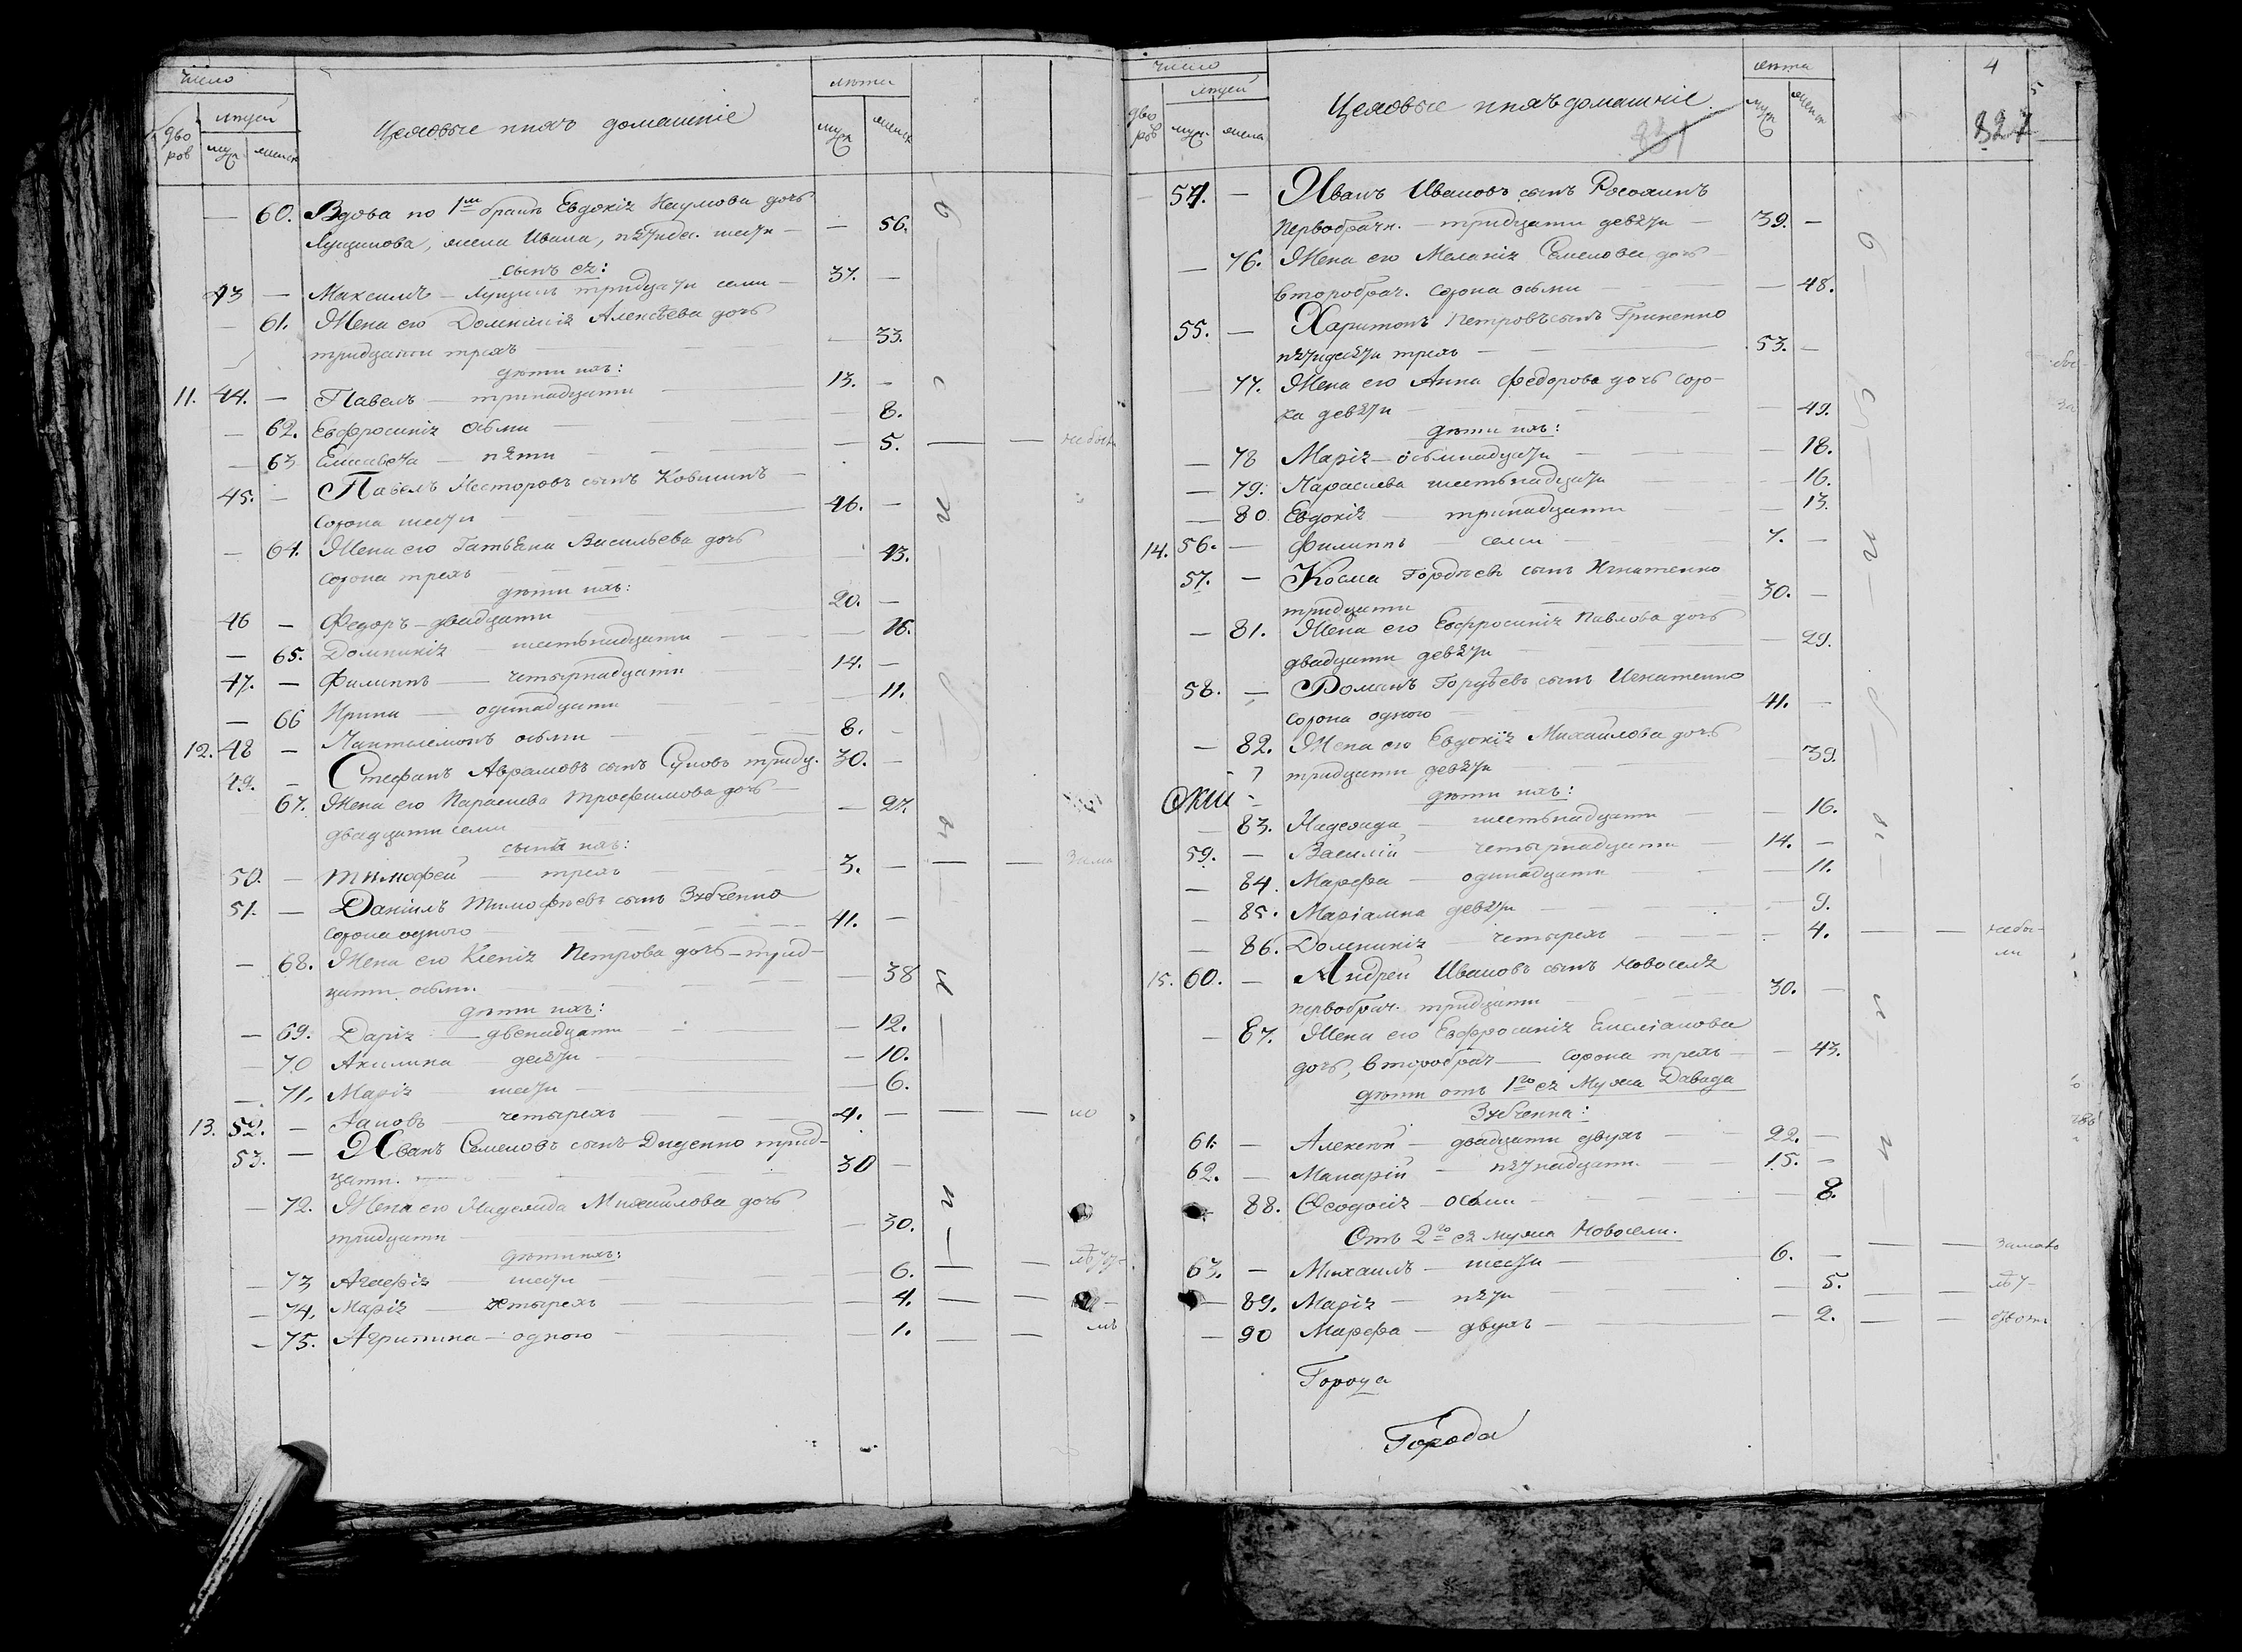 число
лѣта
дворов
людей
муж.
женск.
Цеховые и ихъ домашніе
муж.
женск.
— 60. Вдова по 1мъ бракѣ Евдокія Наумова дочь
Лущикова, жена Ивана, пятидес. шести — — 56.
сынъ ея:
43 — Максимъ — Лущикъ тридцати семи — 37. —
— 61. Жена его Домникія Алексѣева дочь
тридцати трехъ — — 33.
дѣти ихъ:
11. 44. — Павелъ — тринадцати — 13. —
— 62. Евфросинія осьми — — 8.
— 63 Елисавета — пяти — — 5. — — небыл
45. — Павелъ Несторовъ сынъ Ковшикъ —
сорока шести — 46. —
— 64. Жена его Татьяна Васильева дочь
сорока трехъ — — 43.
дѣти ихъ:
46 — Федоръ — двадцати 20. —
— 65. Домникія — шестьнадцати — — 16.
47. — Филиппъ — четырнадцати 14. —
— 66 Ирина — одинадцати — 11.
12. 48 — Пантелемонъ осьми — 8. —
49. — Стефанъ Аврамовъ сынъ Суковъ тридц. 30. —
67. Жена его Параскева Трофимова дочь —
двадцати семи — 27.
сынъ ихъ:
50. — Тимофей — трехъ 3. — — —
51. — Даніилъ Тимофѣевъ сынъ Зубченко
сорока одного — 41. —
— 68. Жена его Ксенія Петрова дочь — трид-
цати осьми. — 38
дѣти ихъ:
— 69. Дарія — двенадцати — 12.
— 70 Акилина — десяти — — 10.
— 71. Марія — шести — — 6.
13. 52. — Іаковъ — четырехъ — 4. — — — но
53. — Иванъ Семеновъ сынъ Диденко трид-
цати. 30 —
— 72. Жена его Надежда Михаилова дочь
тридцати — — 30.
дѣти ихъ:
— 73 Агафія — шести — 6. — —
— 74. Марія — четырехъ — — 4. — —
— 75. Агрипина — одного — — 1. — — мъ
число
лѣта
4
дворов
людей
муж.
женск.
Цеховые и ихъ домашніе.
831
муж.
женск.
827
— 54. — Иванъ Ивановъ сынъ Росохинъ
первобрачн. — тридцати девяти — 39. —
— 76. Жена его Меланія Семенова дочь —
второбрач. сорока осьми — — 48.
55. — Харитонъ Петровъ сынъ Гриненко
пятидесяти трехъ — 53. —
— 77. Жена его Анна Федорова дочь соро-
ка девяти — 49.
дѣти ихъ:
— 78 Марія — осьмнадцати — — 18.
— 79. Параскева шестьнадцати — — 16.
— 80 Евдокія — тринадцати — 13.
14. 56. — Филиппъ — семи 7. —
57. — Косма Гордѣевъ сынъ Игнатенко
тридцати — 30. —
— 81. Жена его Евфросинія Павлова дочь
двадцати девяти — — 29.
58. — Романъ Гордѣевъ сынъ Игнатенко
сорока одного — 41. —
— 82. Жена его Евдокія Михаилова дочь
тридцати девяти — 39.
дѣти ихъ:
— 83. Надежда — шестьнадцати — — 16.
59. — Василій — четырнадцати — 14. —
— 84. Марфа — одинадцати — 11.
— 85. Маріамна девяти — — 9.
— 86. Домникія — четырехъ — — 4. — — небы-
ли
15. 60. — Андрей Ивановъ сынъ Новоселя
первобрач. тридцати — 30. —
— 87. Жена его Евфросинія Емеліанова
дочь, второбрач — сорока трехъ — — 43.
дѣти отъ 1го ея мужа Давида
Зубченка:
61. — Алексей — двадцати двухъ — 22. —
62. — Макарій — пятнадцати — 15. —
88. Феодосія — осьми — — 8.
Отъ 2го ея мужа Новосели.
63. — Михаилъ — шести — 6. — — —
— 89. Марія — пяти — 5. — —
— 90 Марфа — двухъ — — 2. — —
Города
Города